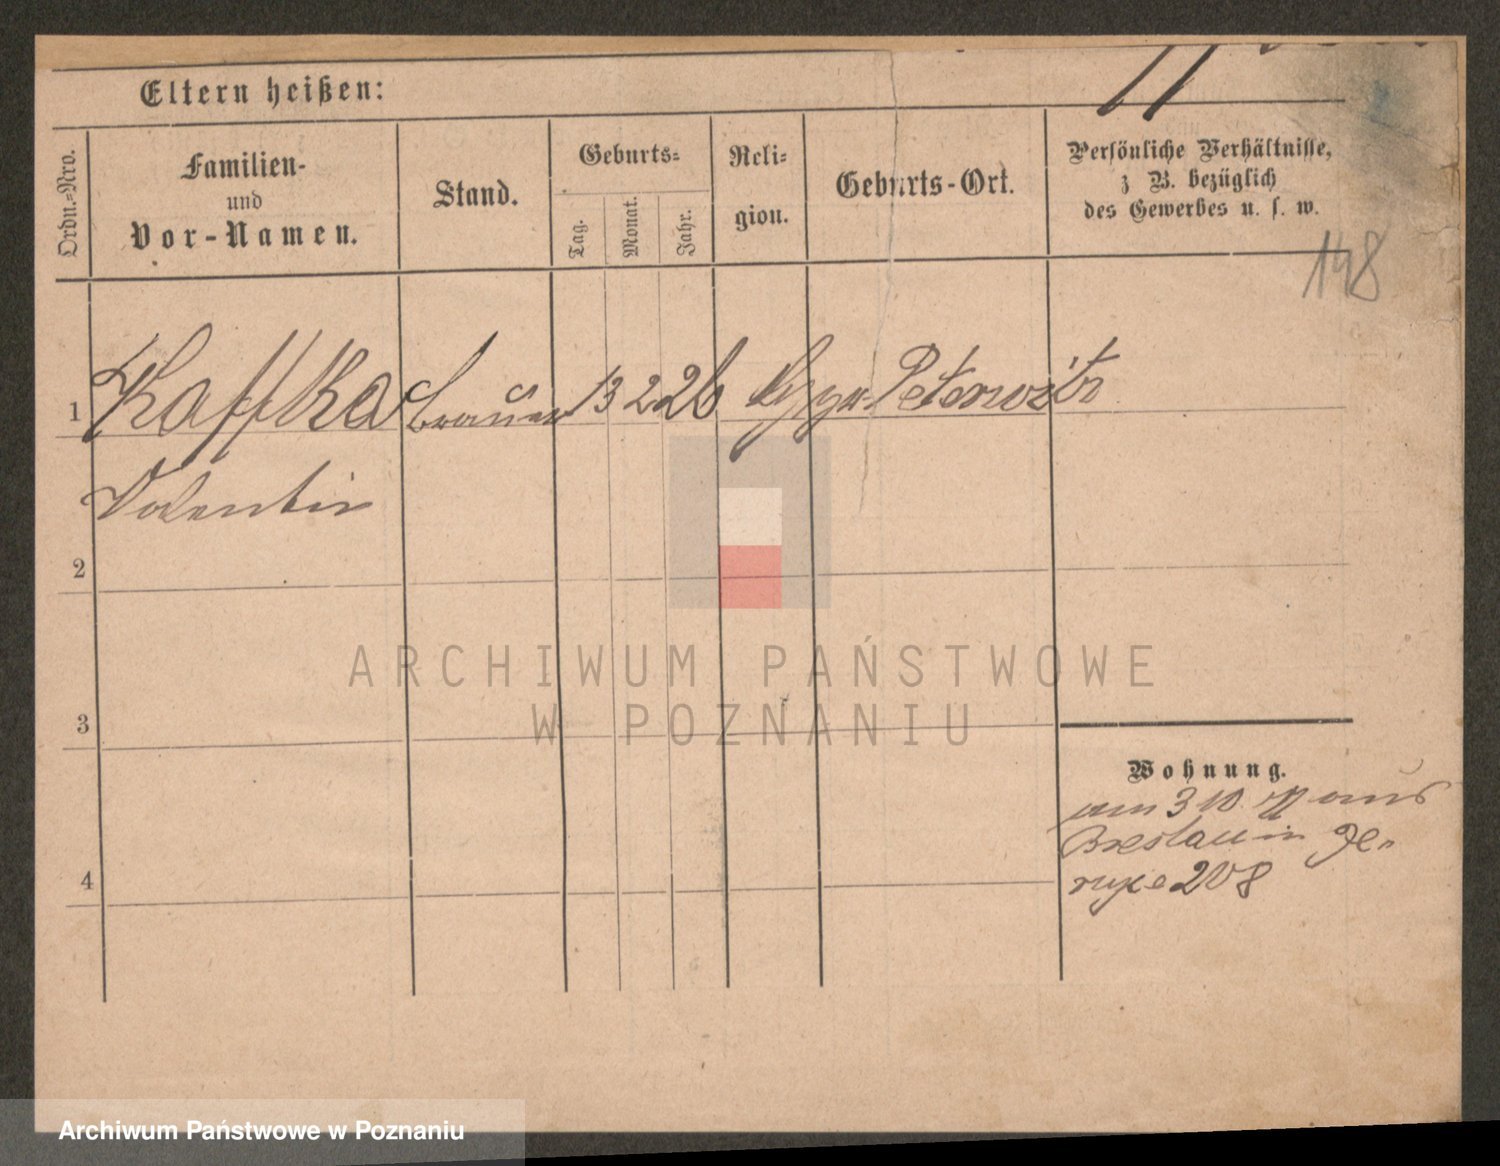 Eltern heißen:
Ordn.-Nro.
Familien-
und
Vor-Namen.
Stand.
Geburts-
Tag.
Monat.
Jahr.
Reli-
gion.
Geburts-Ort.
Persönliche Verhältnisse,
z B. bezüglich
des Gewerbes u. s. w.
148
1 Kaffka Brauer 13 2 26 Peterwitz
Valentin
2
3
4
Wohnung.
am 3 10 77 aus
Breslau in Je-
rzyce 208
ARCHIWUM PAŃSTWOWE
W POZNANIU
Archiwum Państwowe w Poznaniu